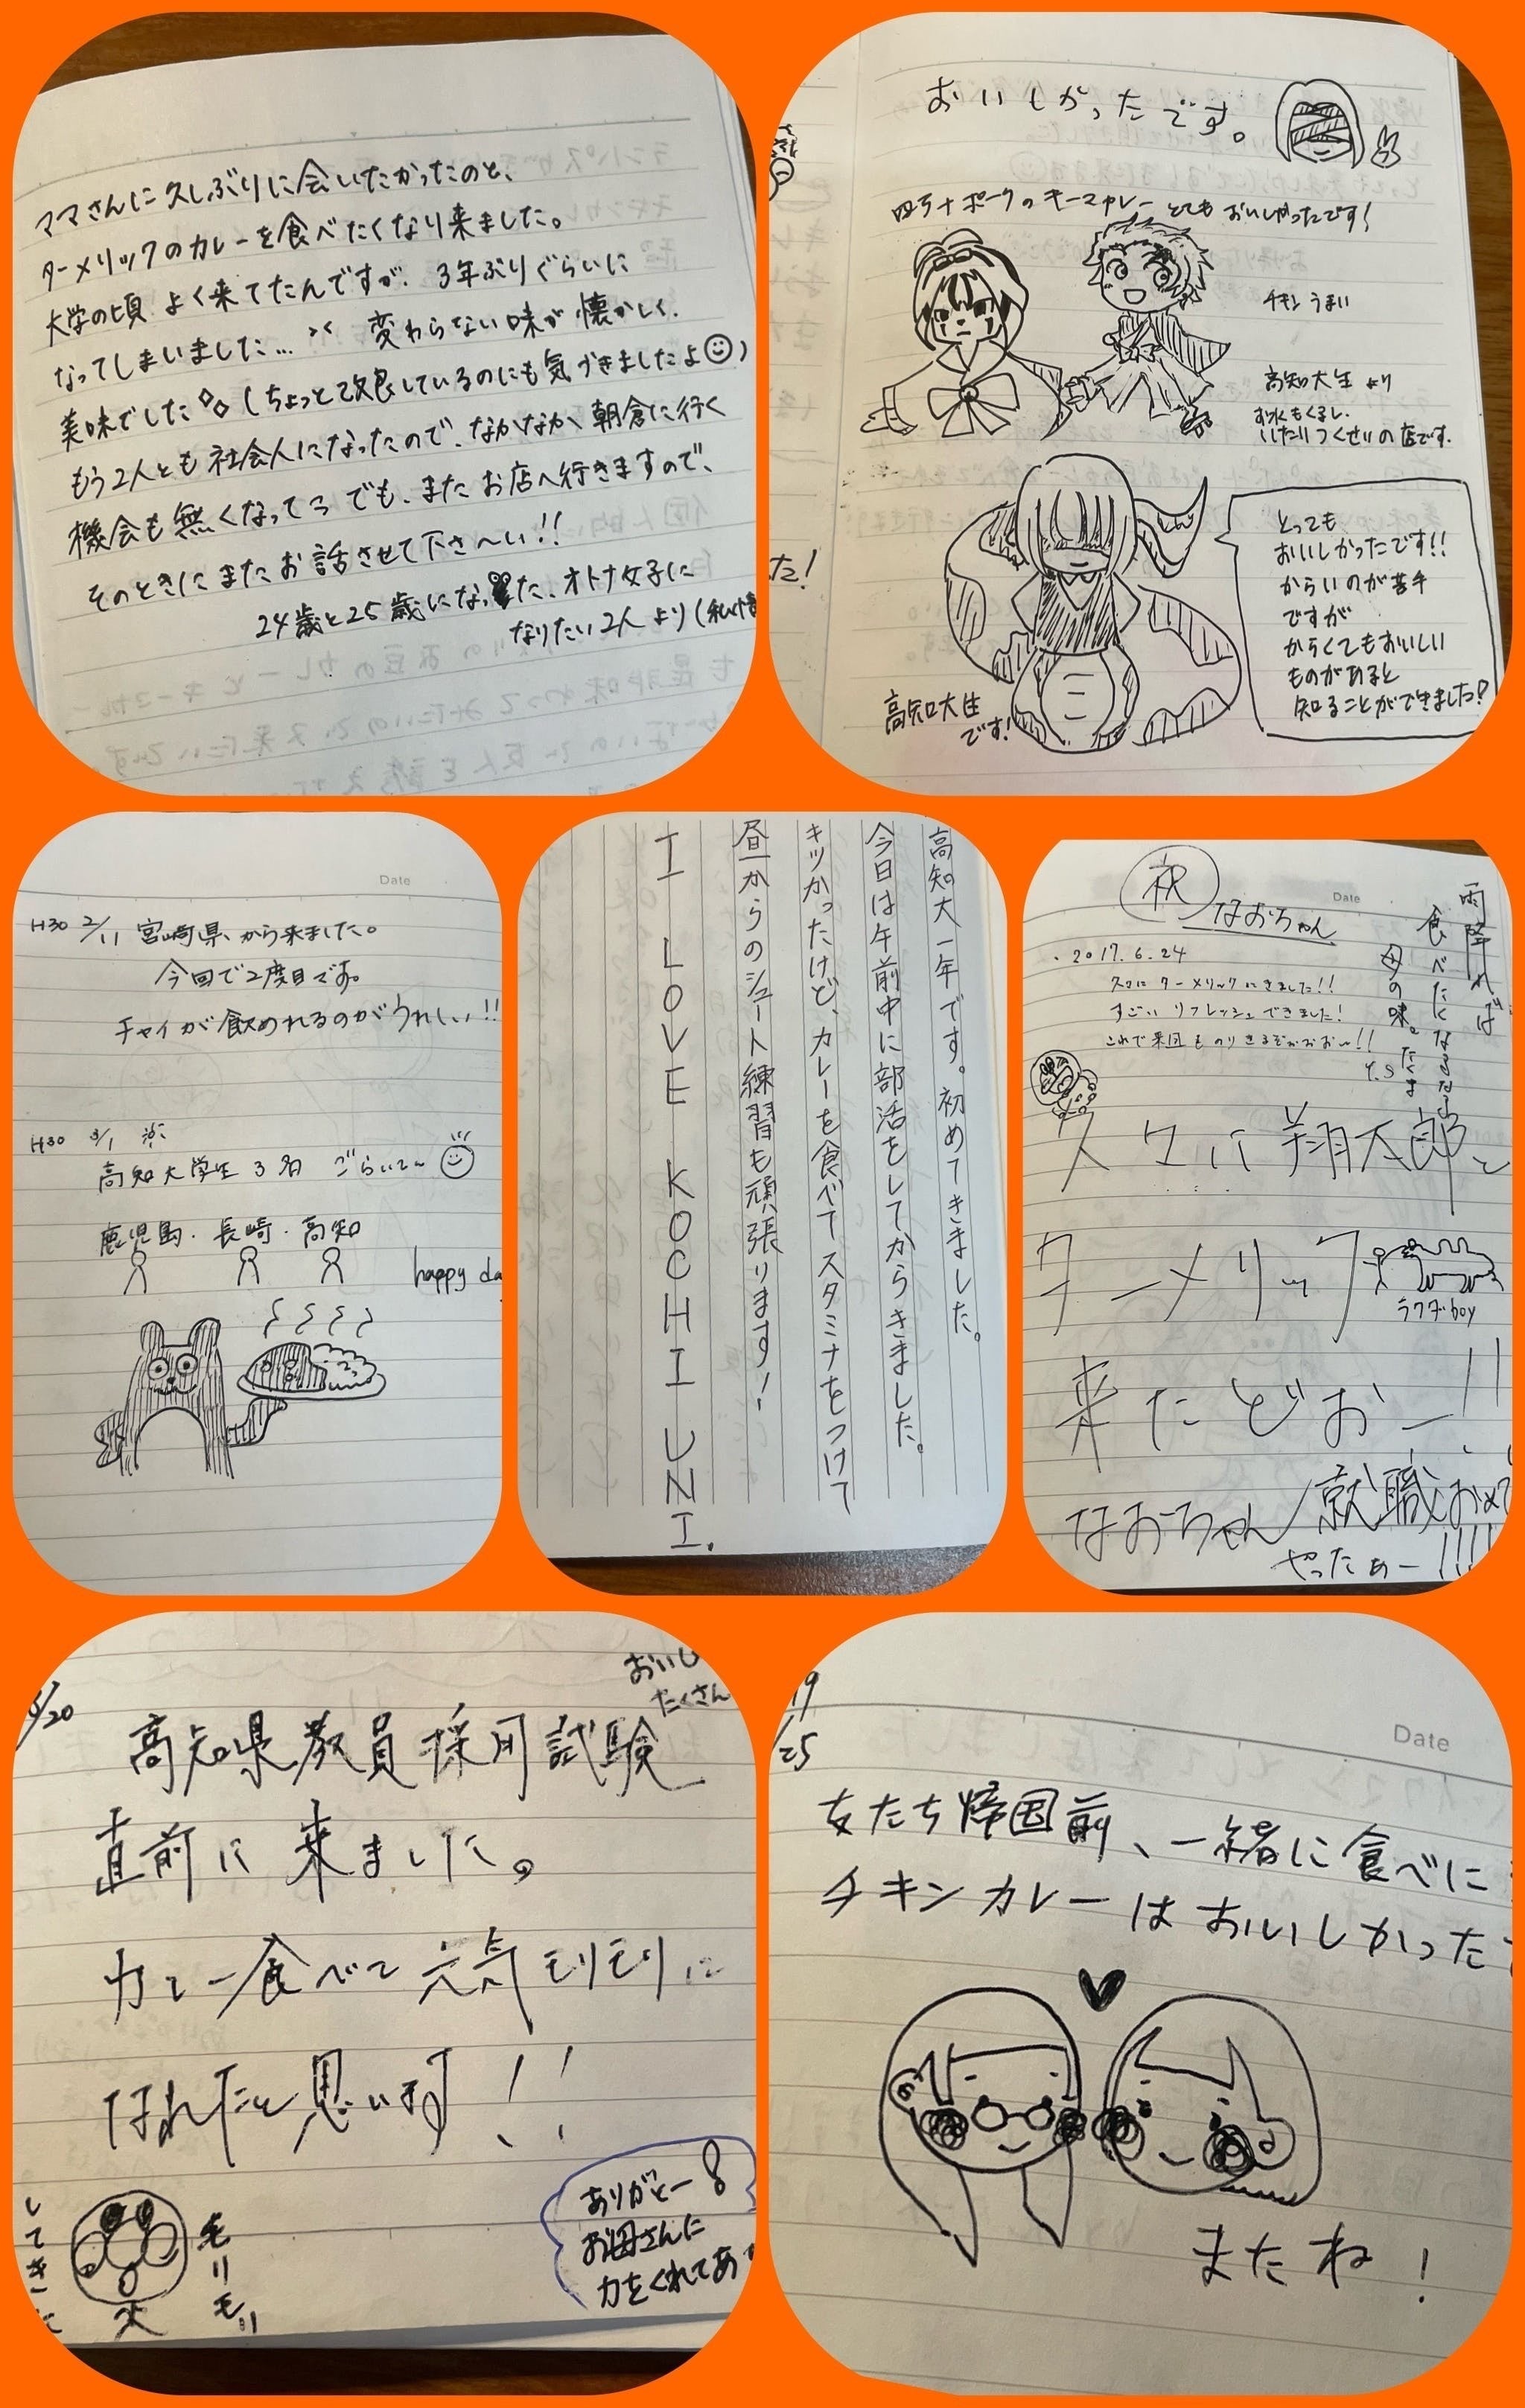 ママさんに久しぶりに会いたかったのと、
ターメリックのカレーを食べたくなり来ました。
大学の頃 よく来てたんですが、3年ぶりぐらいに
なってしまいました… 変わらない味が懐かしく、
美味でした (ちょっと改良しているのにも気づきましたよ☺)
もう2人とも社会人になったので、なかなか朝倉に行く
機会も無くなって でも、またお店へ行きますので、
そのときにまたお話させて下さ〜い!!
24歳と25歳になった、オトナ女子に
なりたい2人より(私情
おいしかったです。
四万十ポークのキーマカレー とてもおいしかったです!
チキン うまい
高知大生 より
お水もくるし、
いたりつくせいの店です。
た!
とっても
おいしかったです!!
からいのが苦手
ですが
からくてもおいしい
ものがあると
知ることができました!
高知大生
です!
Date
H30 2/11 宮崎県から来ました。
今回で2度目です。
チャイが飲めれるのがうれしい!!
H30 3/1
高知大学生 3名 ごらいてん
鹿児島・長崎・高知
happy da
高知大一年です。初めてきました。
今日は午前中に部活をしてからきました。
キツかったけど、カレーを食べてスタミナをつけて
昼からのシュート練習も頑張ります!
I LOVE KOCHI UNI.
Date
祝 なおちゃん
雨降れば
食べたくなるなー
母の味。たくま
Y.S
2017.6.24
久々に ターメリックにきました!!
すごい リフレッシュできました!
これで集団ものりきるぞおおお〜!!
久々に 翔太郎と
ターメリック
ラクダboy
来たどおー!!
なおちゃん 就職おめで
やったぁー!!!!
/20
おいし
たくさん
高知県教員採用試験
直前に来ました。
カレー食べて元気モリモリに
なれたと思います!!
モリモリ
してきた
ありがとー
お母さんに
力をくれてあ
19
/25
Date
友たち帰国前、一緒に食べに
チキンカレーはおいしかった
またね!